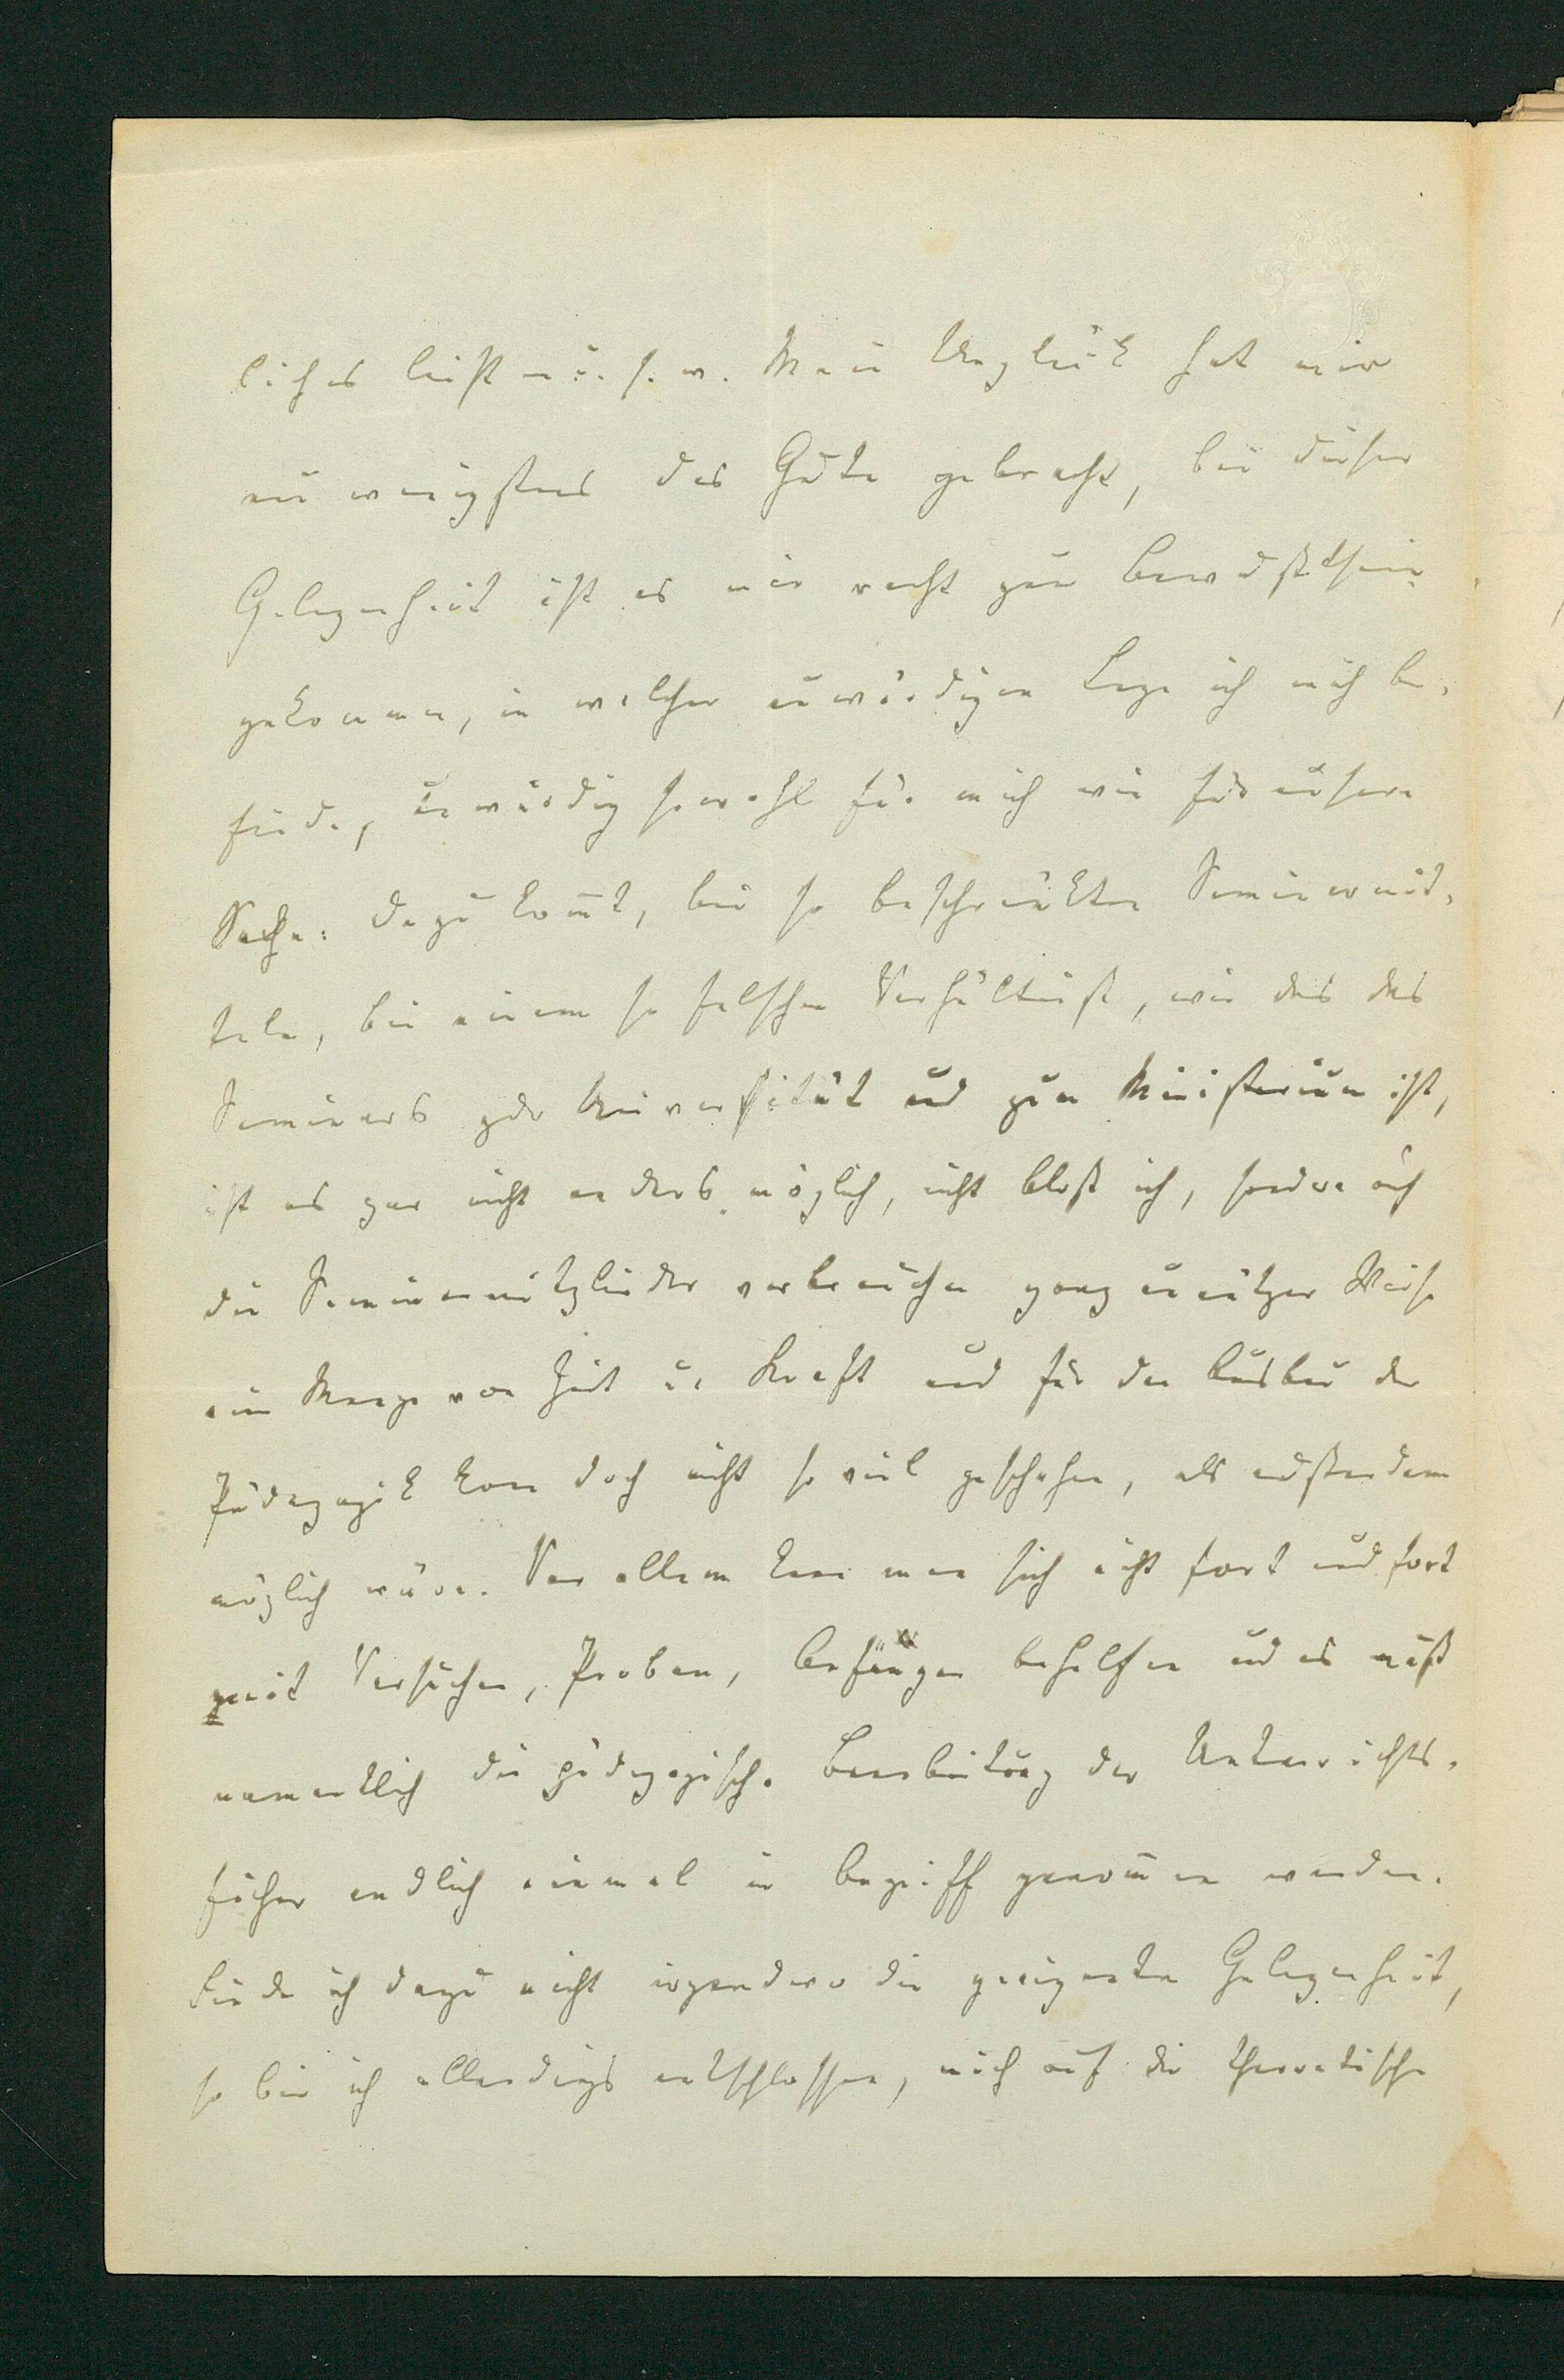 liches leisten u. s. w. Mein Unglück hat mir
nun wenigstens das Gute gebracht, bei dieser
Gelegenheit ist es mir recht zum Bewußtsein
gekommen, in welcher unwürdigen Lage ich mich be-
finde, unwürdig sowohl für mich wie für unsere
Sache. Dazu kom̄t, bei so beschränkten Seminarmit-
teln, bei einem so falschen Verhältniß, wie das des
Seminars zur Universität und zum Ministerium ist,
ist es gar nicht anders möglich, nicht bloß ich, sondern auch
die Seminarmitglieder verbrauchen ganz unnützer Weise
eine Menge von Zeit u. Kraft und für den Ausbau der
Pädagogik kann doch nicht so viel geschehen, als außerdem
möglich wäre. Vor allem kann man sich nicht fort und fort
mit Versuchen, Proben, Anfängen behelfen und es muß
namentlich die pädagogische Bearbeitung der Unterrichts-
fächer endlich einmal in Angriff genom̄en werden.
Finde ich dazu nicht irgendwo die geeignete Gelegenheit,
so bin ich allerdings entschlossen, mich auf die theoretische